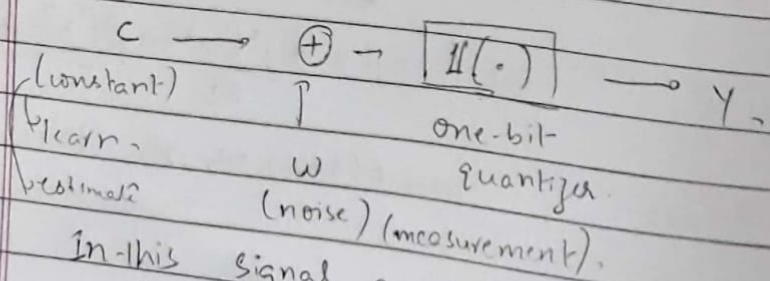 C → ⊕ → 𝟙(·) → Y.
(constant) ↑ one-bit
learn. W quantizer.
estimate (noise) (measurement).
In-this signal